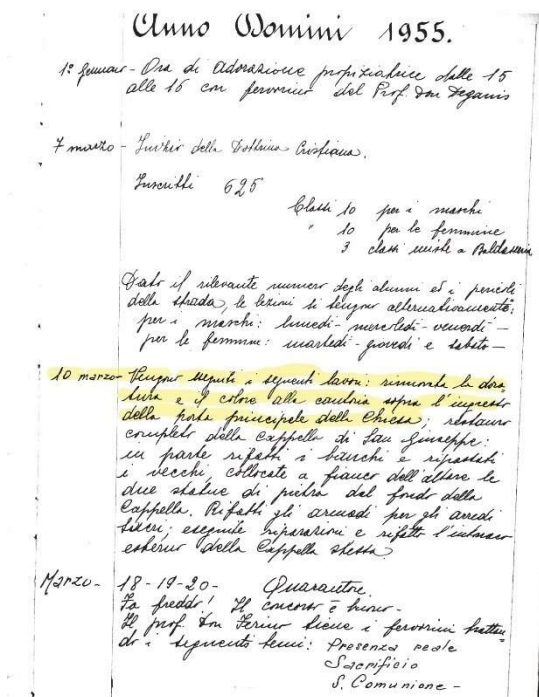 Anno Domini 1955.
1º Gennaio - Ora di adorazione propiziatrice dalle 15
alle 16 con fervorino del Prof. Don Deganis
7 marzo - Inizio della Dottrina Cristiana.
Inscritti 625
Classi 10 per i maschi
" 10 per le femmine
3 classi miste a Baldasseria
Dato il rilevante numero degli alunni ed i pericoli
della strada, le lezioni si tengono alternativamente:
per i maschi: lunedì - mercoledì - venerdì -
per le femmine: martedì - giovedì e sabato -
10 marzo - Vengono eseguiti i seguenti lavori: rinnovata la dora-
tura e il colore alla cantoria sopra l'ingresso
della porta principale della Chiesa; restauro
completo della cappella di San Giuseppe:
in parte rifatti i banchi e riparati
i vecchi, collocate a fianco dell'altare le
due statue di pietra dal fondo della
Cappella. Rifatti gli armadi per gli arredi
sacri; eseguite riparazioni e rifatto l'intonaco
esterno della Cappella stessa
Marzo - 18-19-20- Quarantore.
Fa freddo! Il concorso è buono -
Il prof. Don Ferino tiene i fervorini trattan-
do i seguenti temi: Presenza reale
Sacrificio
S. Comunione -